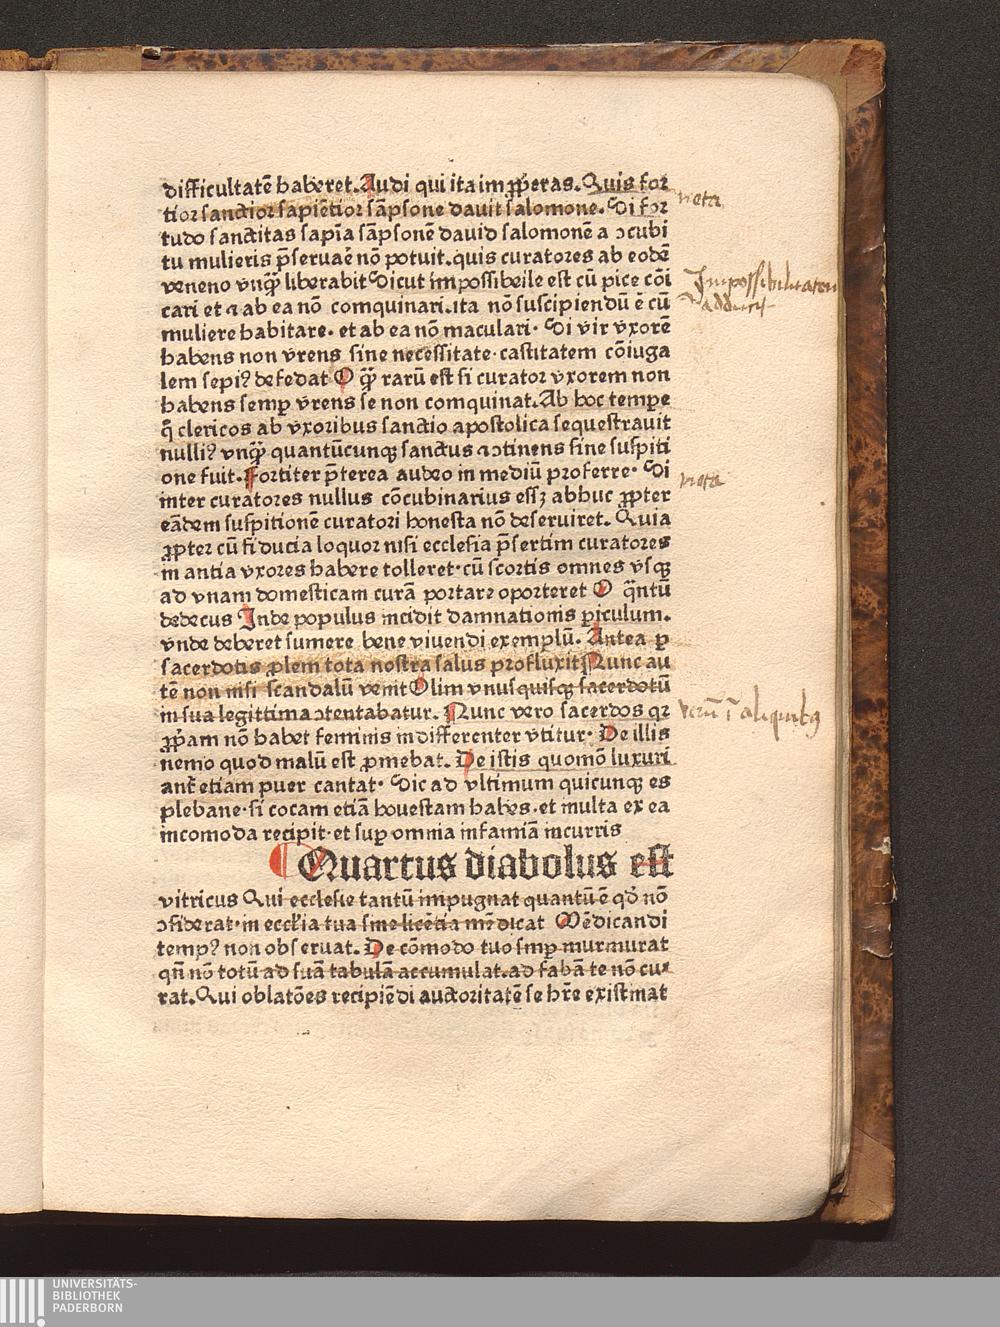 difficultatē haberet. Audi qui ita imꝓperas. Quis for
tior sanctior sapiētior sāpsone dauit salomone. Si for
tudo sanctitas sapīa sāpsonē dauid salomonē a ɔcubi
tu mulieris p̄seruaē nō potuit. quis curatores ab eodē
veneno vnq̄ꝫ liberabit Sicut impossibeile est cū pice cōi
cari et ⁊ ab ea nō comquinari. ita nō suscipiendū ē cū
muliere habitare. et ab ea nō maculari. Si vir vxorē
habens non vrens sine necessitate. castitatem cōiuga
lem sepiꝰ defedat O q̄ꝫ rarū est si curator vxorem non
habens semꝑ vrens se non comquinat. Ab hoc tempore
q̄ clericos ab vxoribus sanctio apostolica sequestrauit
nulliꝰ vnq̄ꝫ quantūcunqꝫ sanctus ⁊ ɔtinens sine suspiti
one fuit. Fortiter p̄terea audeo in mediū proferre. Si
inter curatores nullus cōcubinarius essꝫ adhuc ꝓpter
eādem suspitionē curatori honesta nō deseruiret. Quia
ꝓpter cū fiducia loquor nisi ecclesia p̄sertim curatores
in antia vxores habere tolleret. cū scortis omnes vsqꝫ
ad vnam domesticam curā portare oporteret O q̄ntū
dedecus Inde populus incidit damnationis ꝑiculum.
vnde deberet sumere bene viuendi exemplū. Antea ꝑ
sacerdotis ꝓlem tota nostra salus profluxit Nunc au
tē non nisi scandalū venit Olim vnusquisqꝫ sacerdotū
in sua legittima ɔtentabatur. Nunc vero sacerdos qꝛ
ꝓpͥam nō habet feminis indifferenter vtitur. De illis
nemo quod malū est ꝓmebat. De istis quomō luxuri
ant̄ etiam puer cantat. Sic ad vltimum quicunqꝫ es
plebane. si cocam etiā houestam habes. et multa ex ea
incomoda recipit. et suꝑ omnia infamiā incurris
Quartus diabolus est
vitricus Qui ecclesie tantū impugnat quantū ē qd̓ nō
ɔfiderat. in eccl̓ia tua sine licētia mēdicat Mēdicandi
tempꝰ non obseruat. De cōmodo tuo smꝑ murmurat
qn̄ nō totū ad suā tabulā accumulat. ad fabā te nō cu
rat. Qui oblatōes recipiēdi auctoritatē se hr̄e existimat
nota
Impossibilitatem
adducit
nota
verū ī aliquibꝰ
UNIVERSITÄTS-
BIBLIOTHEK
PADERBORN